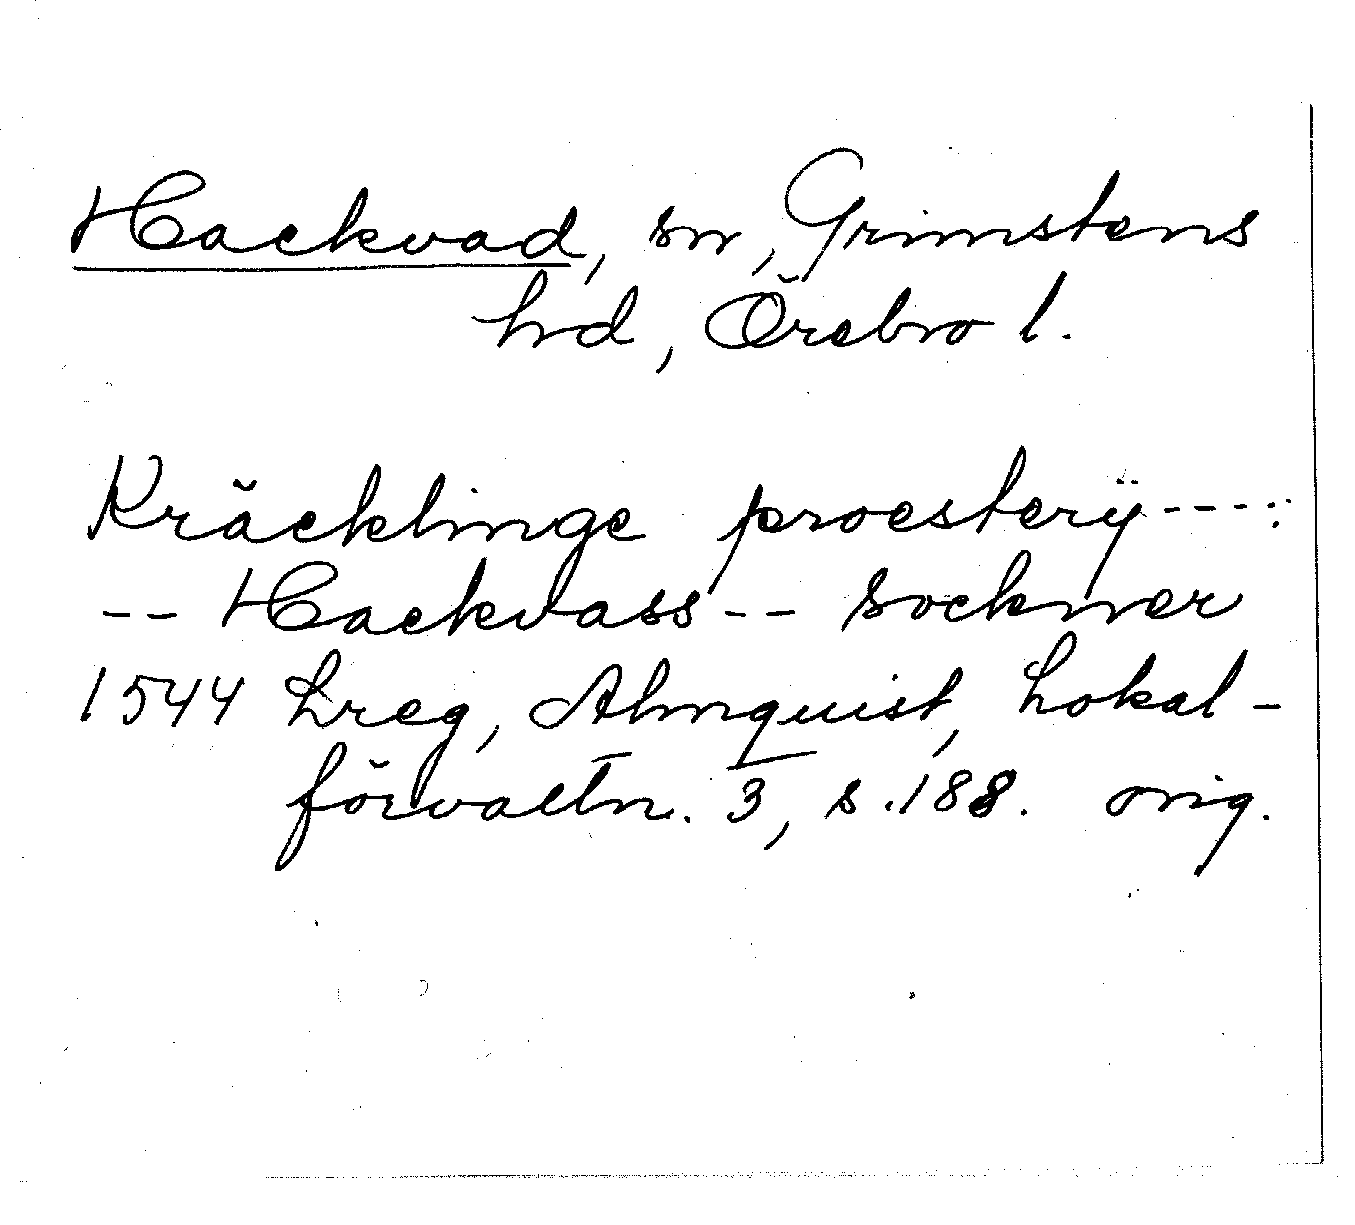 Hackvad, sn, Grimstens
hd, Örebro l.
Kräcklinge proesterÿ ----:
-- Hackvass -- sockner
1544 Lreg, Almquist, Lokal-
förvaltn. 3, s. 188. orig.